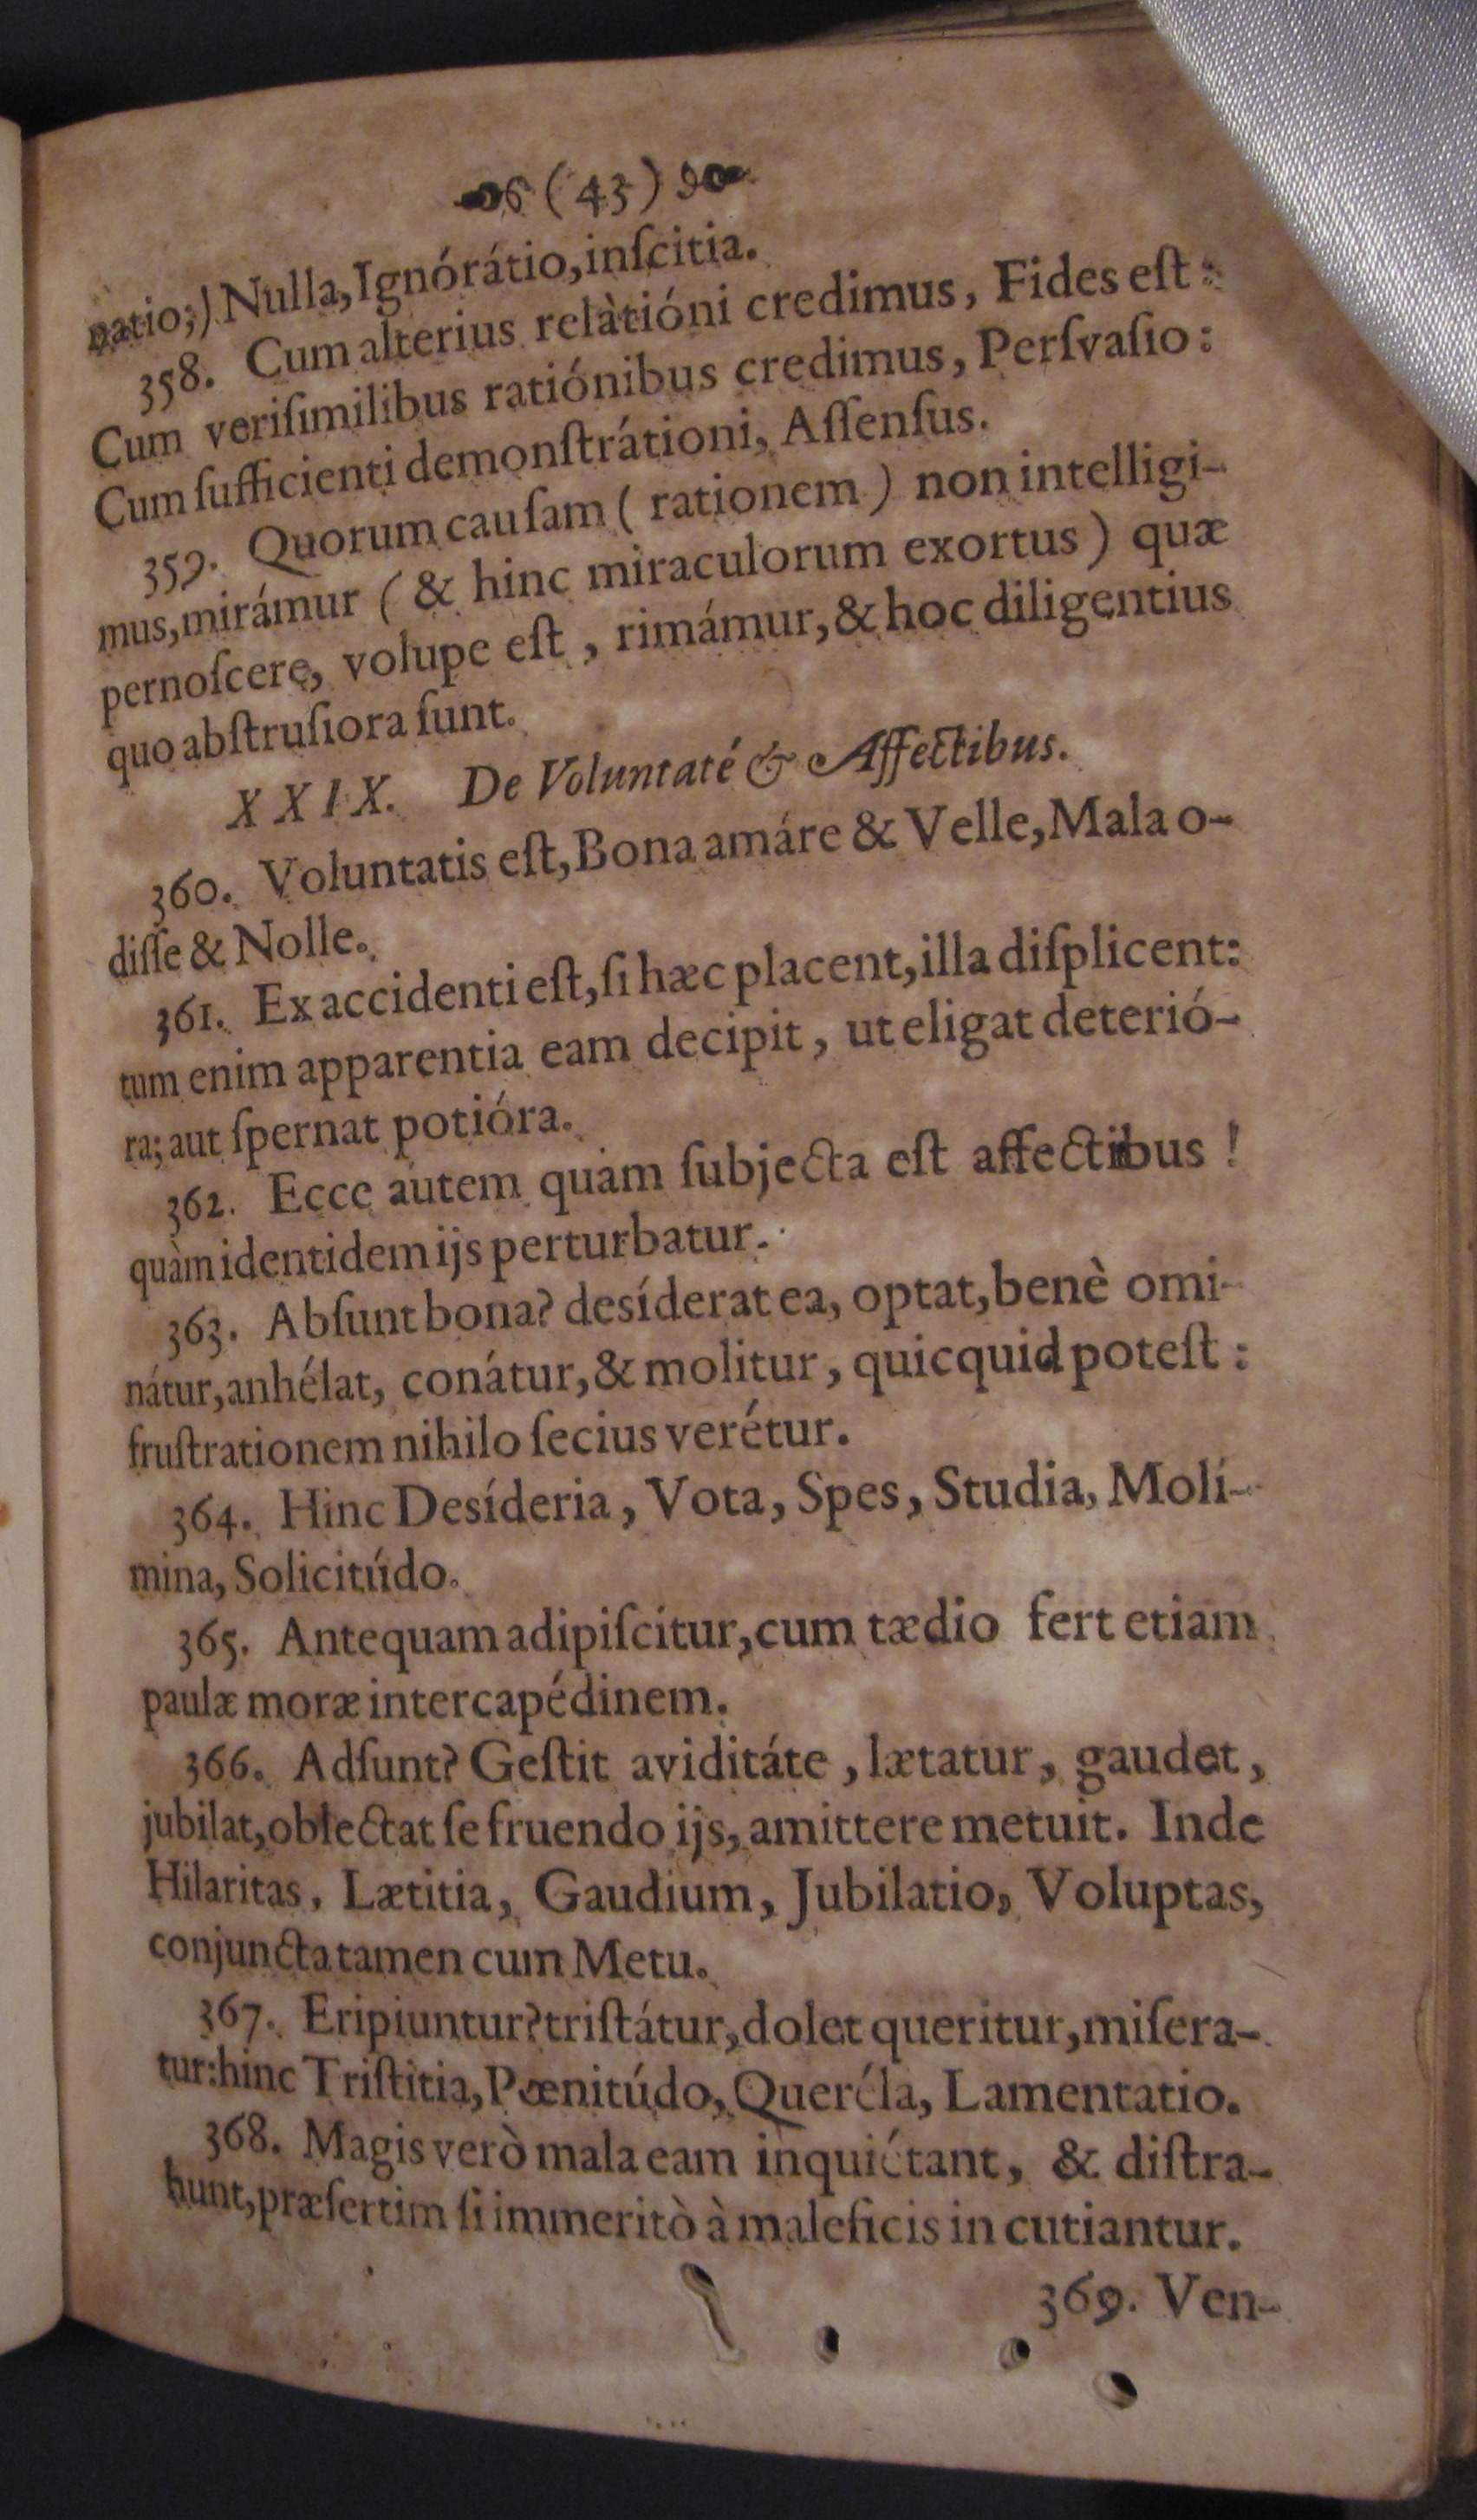 (43)
natio;) Nulla, Ignórátio, inſcitia.
358. Cum alterius relàtióni credimus, Fides eſt:
Cum veriſimilibus ratiónibus credimus, Perſvaſio:
Cum ſufficienti demonſtrátioni, Aſſenſus.
359. Quorum cauſam ( rationem ) non intelligi-
mus, mirámur ( & hinc miraculorum exortus ) quæ
pernoſcere, volupe eſt, rimámur, & hoc diligentius
quo abſtruſiora ſunt.
XXIX. De Voluntaté & Affectibus.
360. Voluntatis eſt, Bona amáre & Velle, Mala o-
diſſe & Nolle.
361. Ex accidenti eſt, ſi hæc placent, illa diſplicent:
tum enim apparentia eam decipit, ut eligat deterió-
ra; aut ſpernat potióra.
362. Ecce autem quàm ſubjecta eſt affectibus !
quàm identidem ijs perturbatur.
363. Abſunt bona? desíderat ea, optat, benè omi-
nátur, anhélat, conátur, & molitur, quicquid poteſt:
fruſtrationem nihilo ſecius verétur.
364. Hinc Desíderia, Vota, Spes, Studia, Molí-
mina, Solicitúdo.
365. Antequam adipiſcitur, cum tædio fert etiam
paulæ moræ intercapédinem.
366. Adſunt? Geſtit aviditáte, lætatur, gaudet,
jubilat, oblectat ſe fruendo ijs, amittere metuit. Inde
Hilaritas, Lætitia, Gaudium, Jubilatio, Voluptas,
conjuncta tamen cum Metu.
367. Eripiuntur? triſtátur, dolet queritur, miſera-
tur: hinc Triſtitia, Pœnitúdo, Queréla, Lamentatio.
368. Magis verò mala eam inquiétant, & diſtra-
hunt, præſertim ſi immeritò à maleficis in cutiantur.
369. Ven-